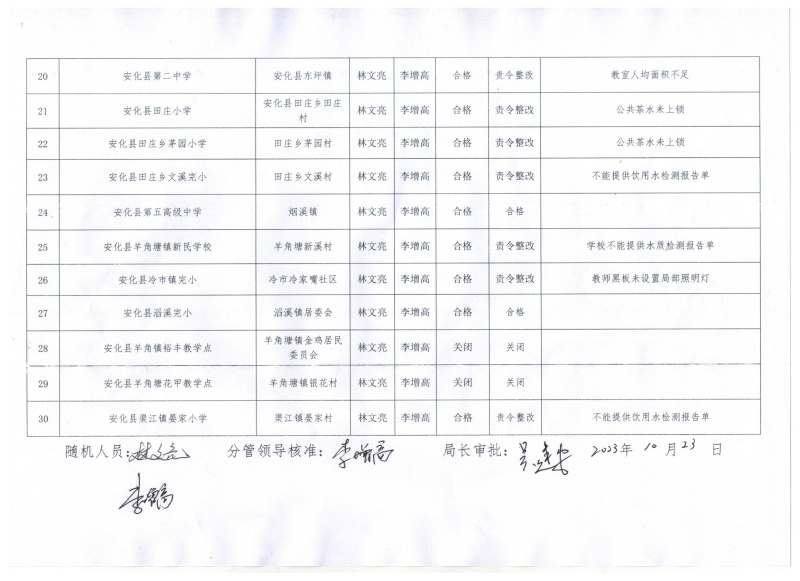 20 安化县第二中学 安化县东坪镇 林文亮 李增高 合格 责令整改 教室人均面积不足
21 安化县田庄小学 安化县田庄乡田庄村 林文亮 李增高 合格 责令整改 公共茶水未上锁
22 安化县田庄乡茅园小学 田庄乡茅园村 林文亮 李增高 合格 责令整改 公共茶水未上锁
23 安化县田庄乡文溪完小 田庄乡文溪村 林文亮 李增高 合格 责令整改 不能提供饮用水检测报告单
24 安化县第五高级中学 烟溪镇 林文亮 李增高 合格 合格
25 安化县羊角塘镇新民学校 羊角塘新溪村 林文亮 李增高 合格 责令整改 学校不能提供水质检测报告单
26 安化县冷市镇完小 冷市冷家嘴社区 林文亮 李增高 合格 责令整改 教师黑板未设置局部照明灯
27 安化县滔溪完小 滔溪镇居委会 林文亮 李增高 合格 合格
28 安化县羊角镇裕丰教学点 羊角塘镇金鸡居民委员会 林文亮 李增高 关闭 关闭
29 安化县羊角塘花甲教学点 羊角塘镇银花村 林文亮 李增高 关闭 关闭
30 安化县渠江镇晏家小学 渠江镇晏家村 林文亮 李增高 合格 责令整改 不能提供饮用水检测报告单
随机人员:林文亮 分管领导核准:李增高 局长审批: 2023年10月23日
李增高